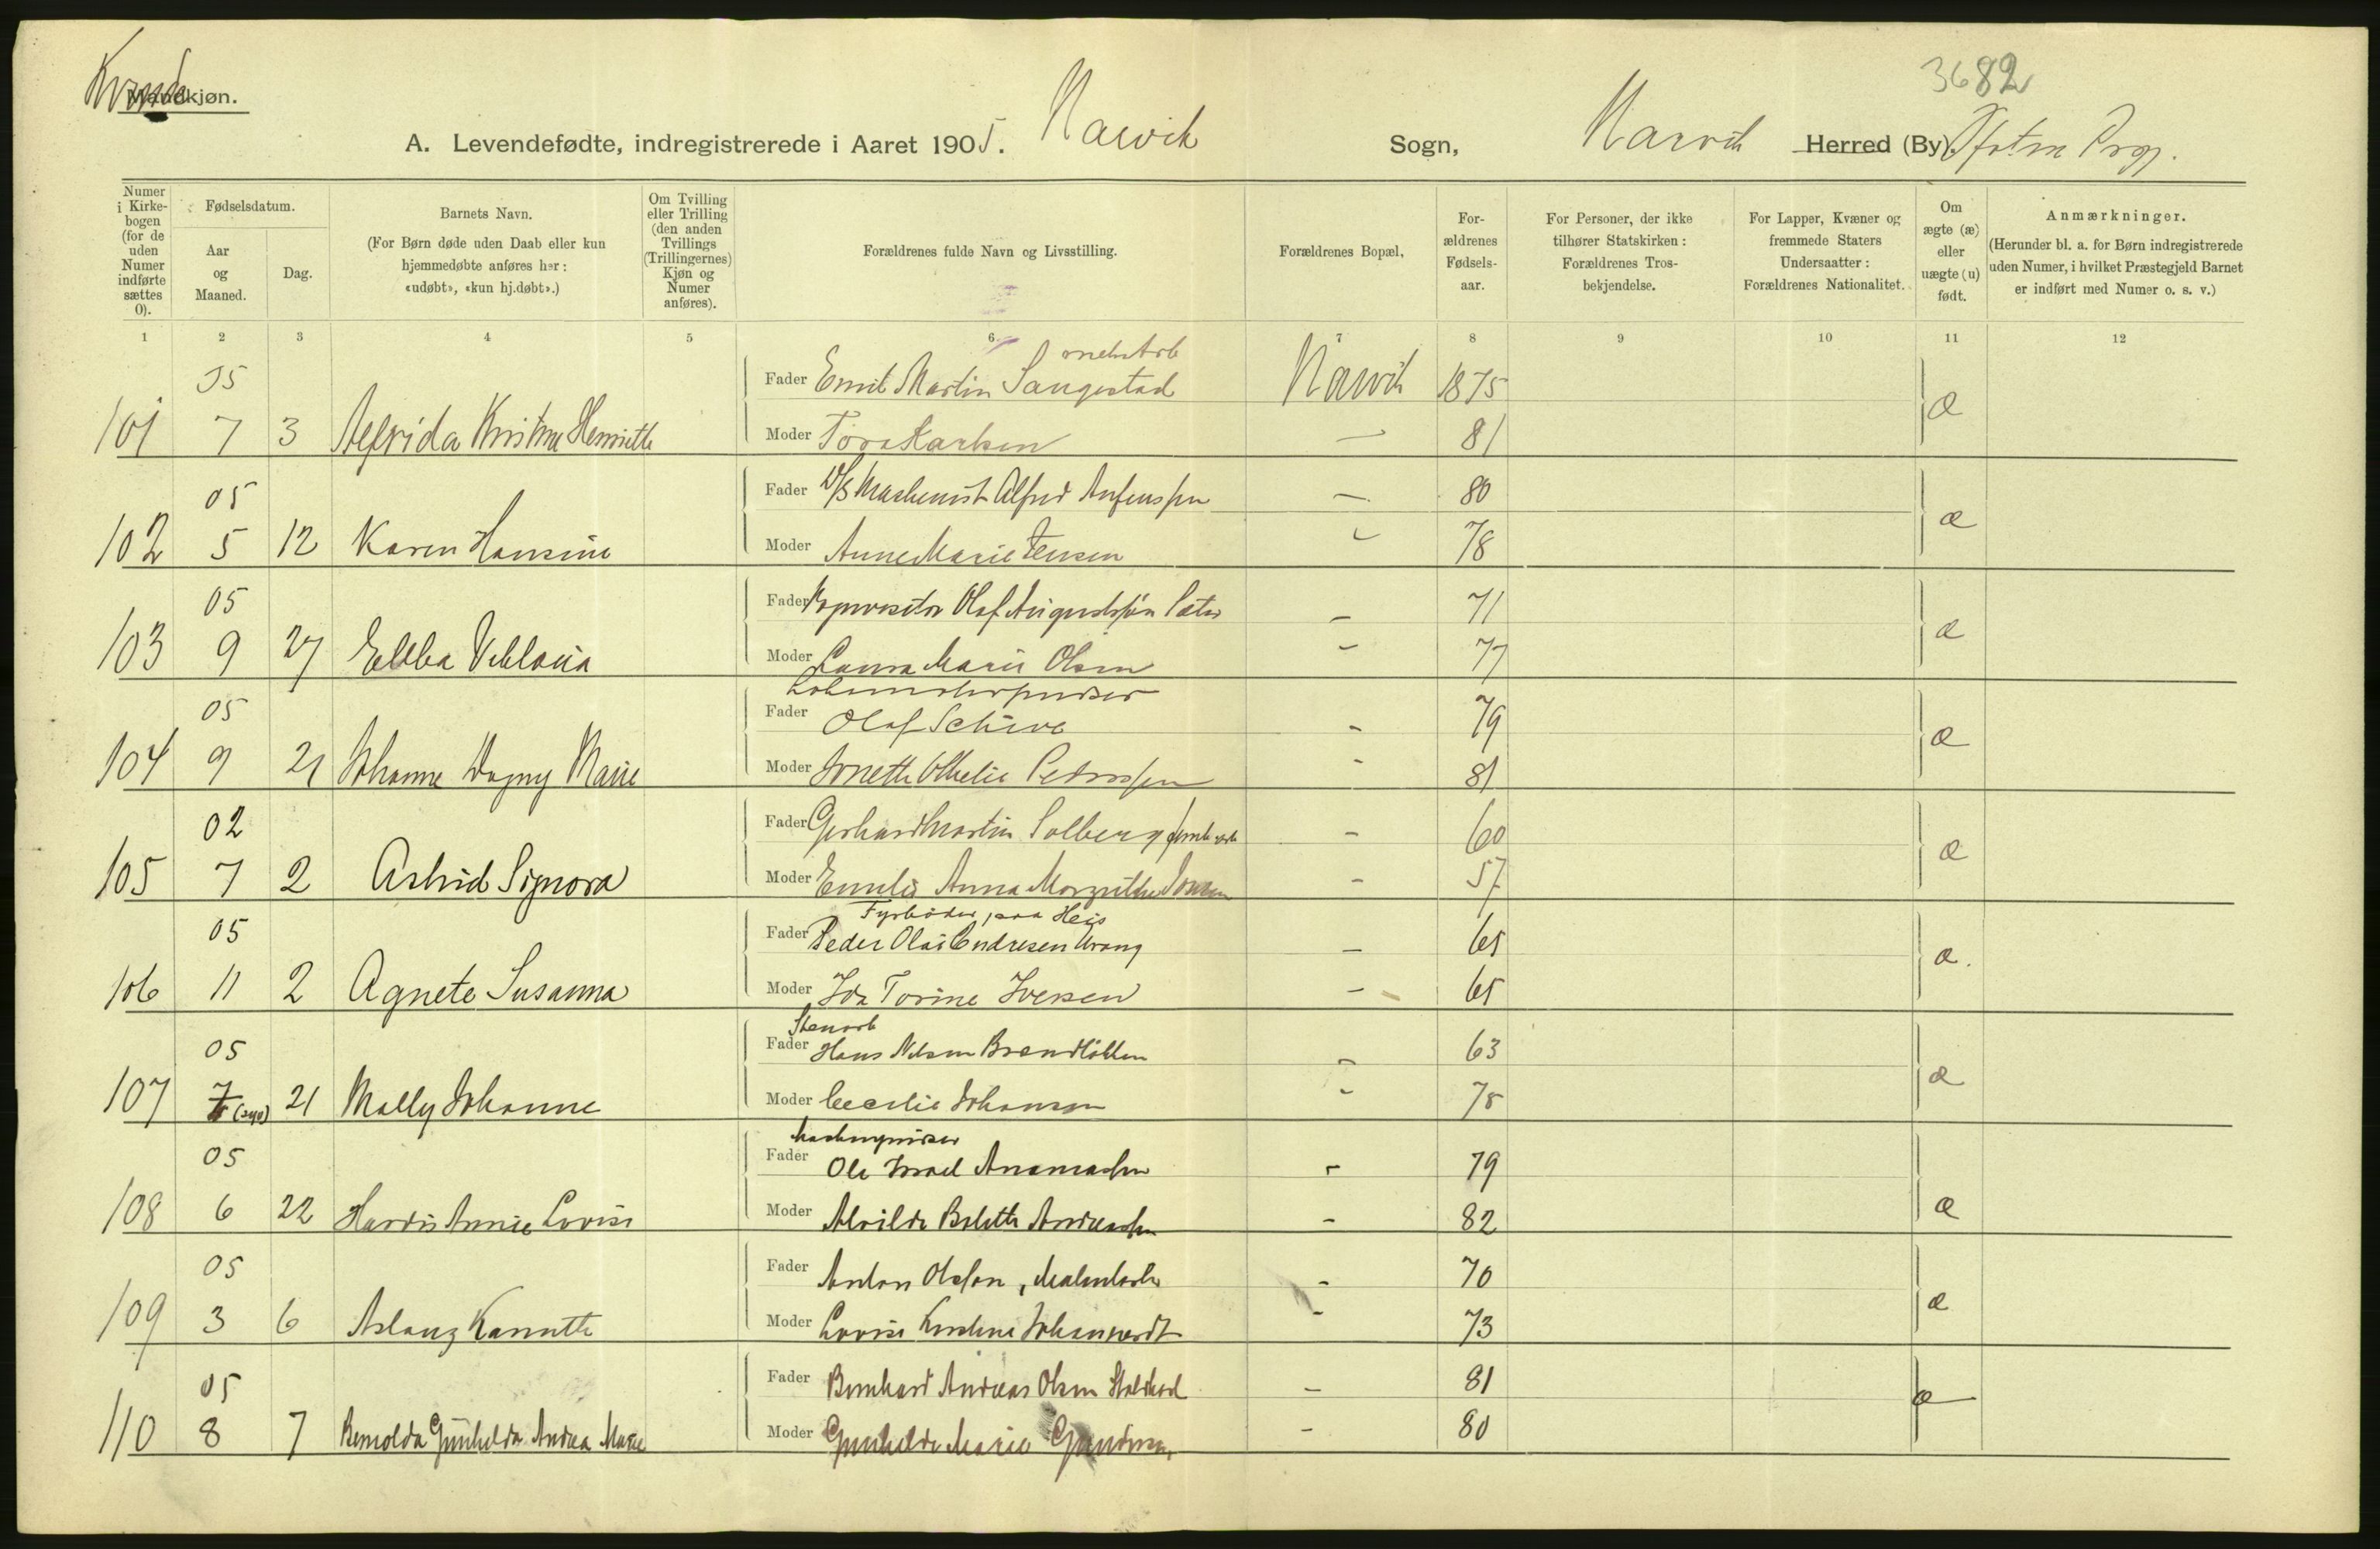 3682
Kvinde Mandkjøn.
A. Levendefødte, indregistrerede i Aaret 1905. Narvik Sogn, Narvik Herred (By). Ofoten Prgj.
Numer i Kirkebogen (for de uden Numer indførte sættes 0).
Fødselsdatum.
Aar og Maaned.
Dag.
Barnets Navn.
(For Børn døde uden Daab eller kun hjemmedøbte anføres her: «udøbt», «kun hj.døbt».)
Om Tvilling eller Trilling (den anden Tvillings (Trillingernes) Kjøn og Numer anføres).
Forældrenes fulde Navn og Livsstilling.
Forældrenes Bopæl,
Forældrenes Fødselsaar.
For Personer, der ikke tilhører Statskirken: Forældrenes Trosbekjendelse.
For Lapper, Kvæner og fremmede Staters Undersaatter: Forældrenes Nationalitet.
Om ægte (æ) eller uægte (u) født.
Anmærkninger.
(Herunder bl. a. for Børn indregistrerede uden Numer, i hvilket Præstegjeld Barnet er indført med Numer o. s. v.)
1 2 3 4 5 6 7 8 9 10 11 12
05
Fader Emil Martin Sangestad Narvik 1875 æ
101 7 3 Alfrida Kristine Henriette Moder Tora Karlsen — 81
05 Fader Alfred — 80 æ
102 5 12 Karen Hansine Moder Anne Marie Jensen — 78
05 Fader Olaf — 71 æ
103 9 27 Ebba Moder Laura Marie Olsen — 77
Lokomotivpudser
05 Fader Olaf Schive — 79 æ
104 9 21 Johanne Dagny Marie Moder Othelie Pedersen — 81
02 Fader Gerhard Martin Solberg — 60 æ
105 7 2 Astrid Signora Moder Emilie Anna — 57
Fyrbøder paa Heis
05 Fader Peder Olai Endresen — 65 æ.
106 11 2 Agnete Susanna Moder Ida Torine Iversen — 65
Stenarb
05 Fader Hans Nilsen — 63 æ
107 7 21 Mally Johanne Moder Cecelie Johansen — 78
05 Fader Ole — 79
108 6 22 Hardis Annie Lovise Moder Alvilde Andreassen — 82 æ
05 Fader Anton Olsson, Malmarb — 70 æ
109 3 6 Aslaug Moder Lovise — 73
05 Fader Bernhard Andreas Olsen — 81 æ
110 8 7 Gunhilda Andrea Marie Moder Gunhilde Marie — 80